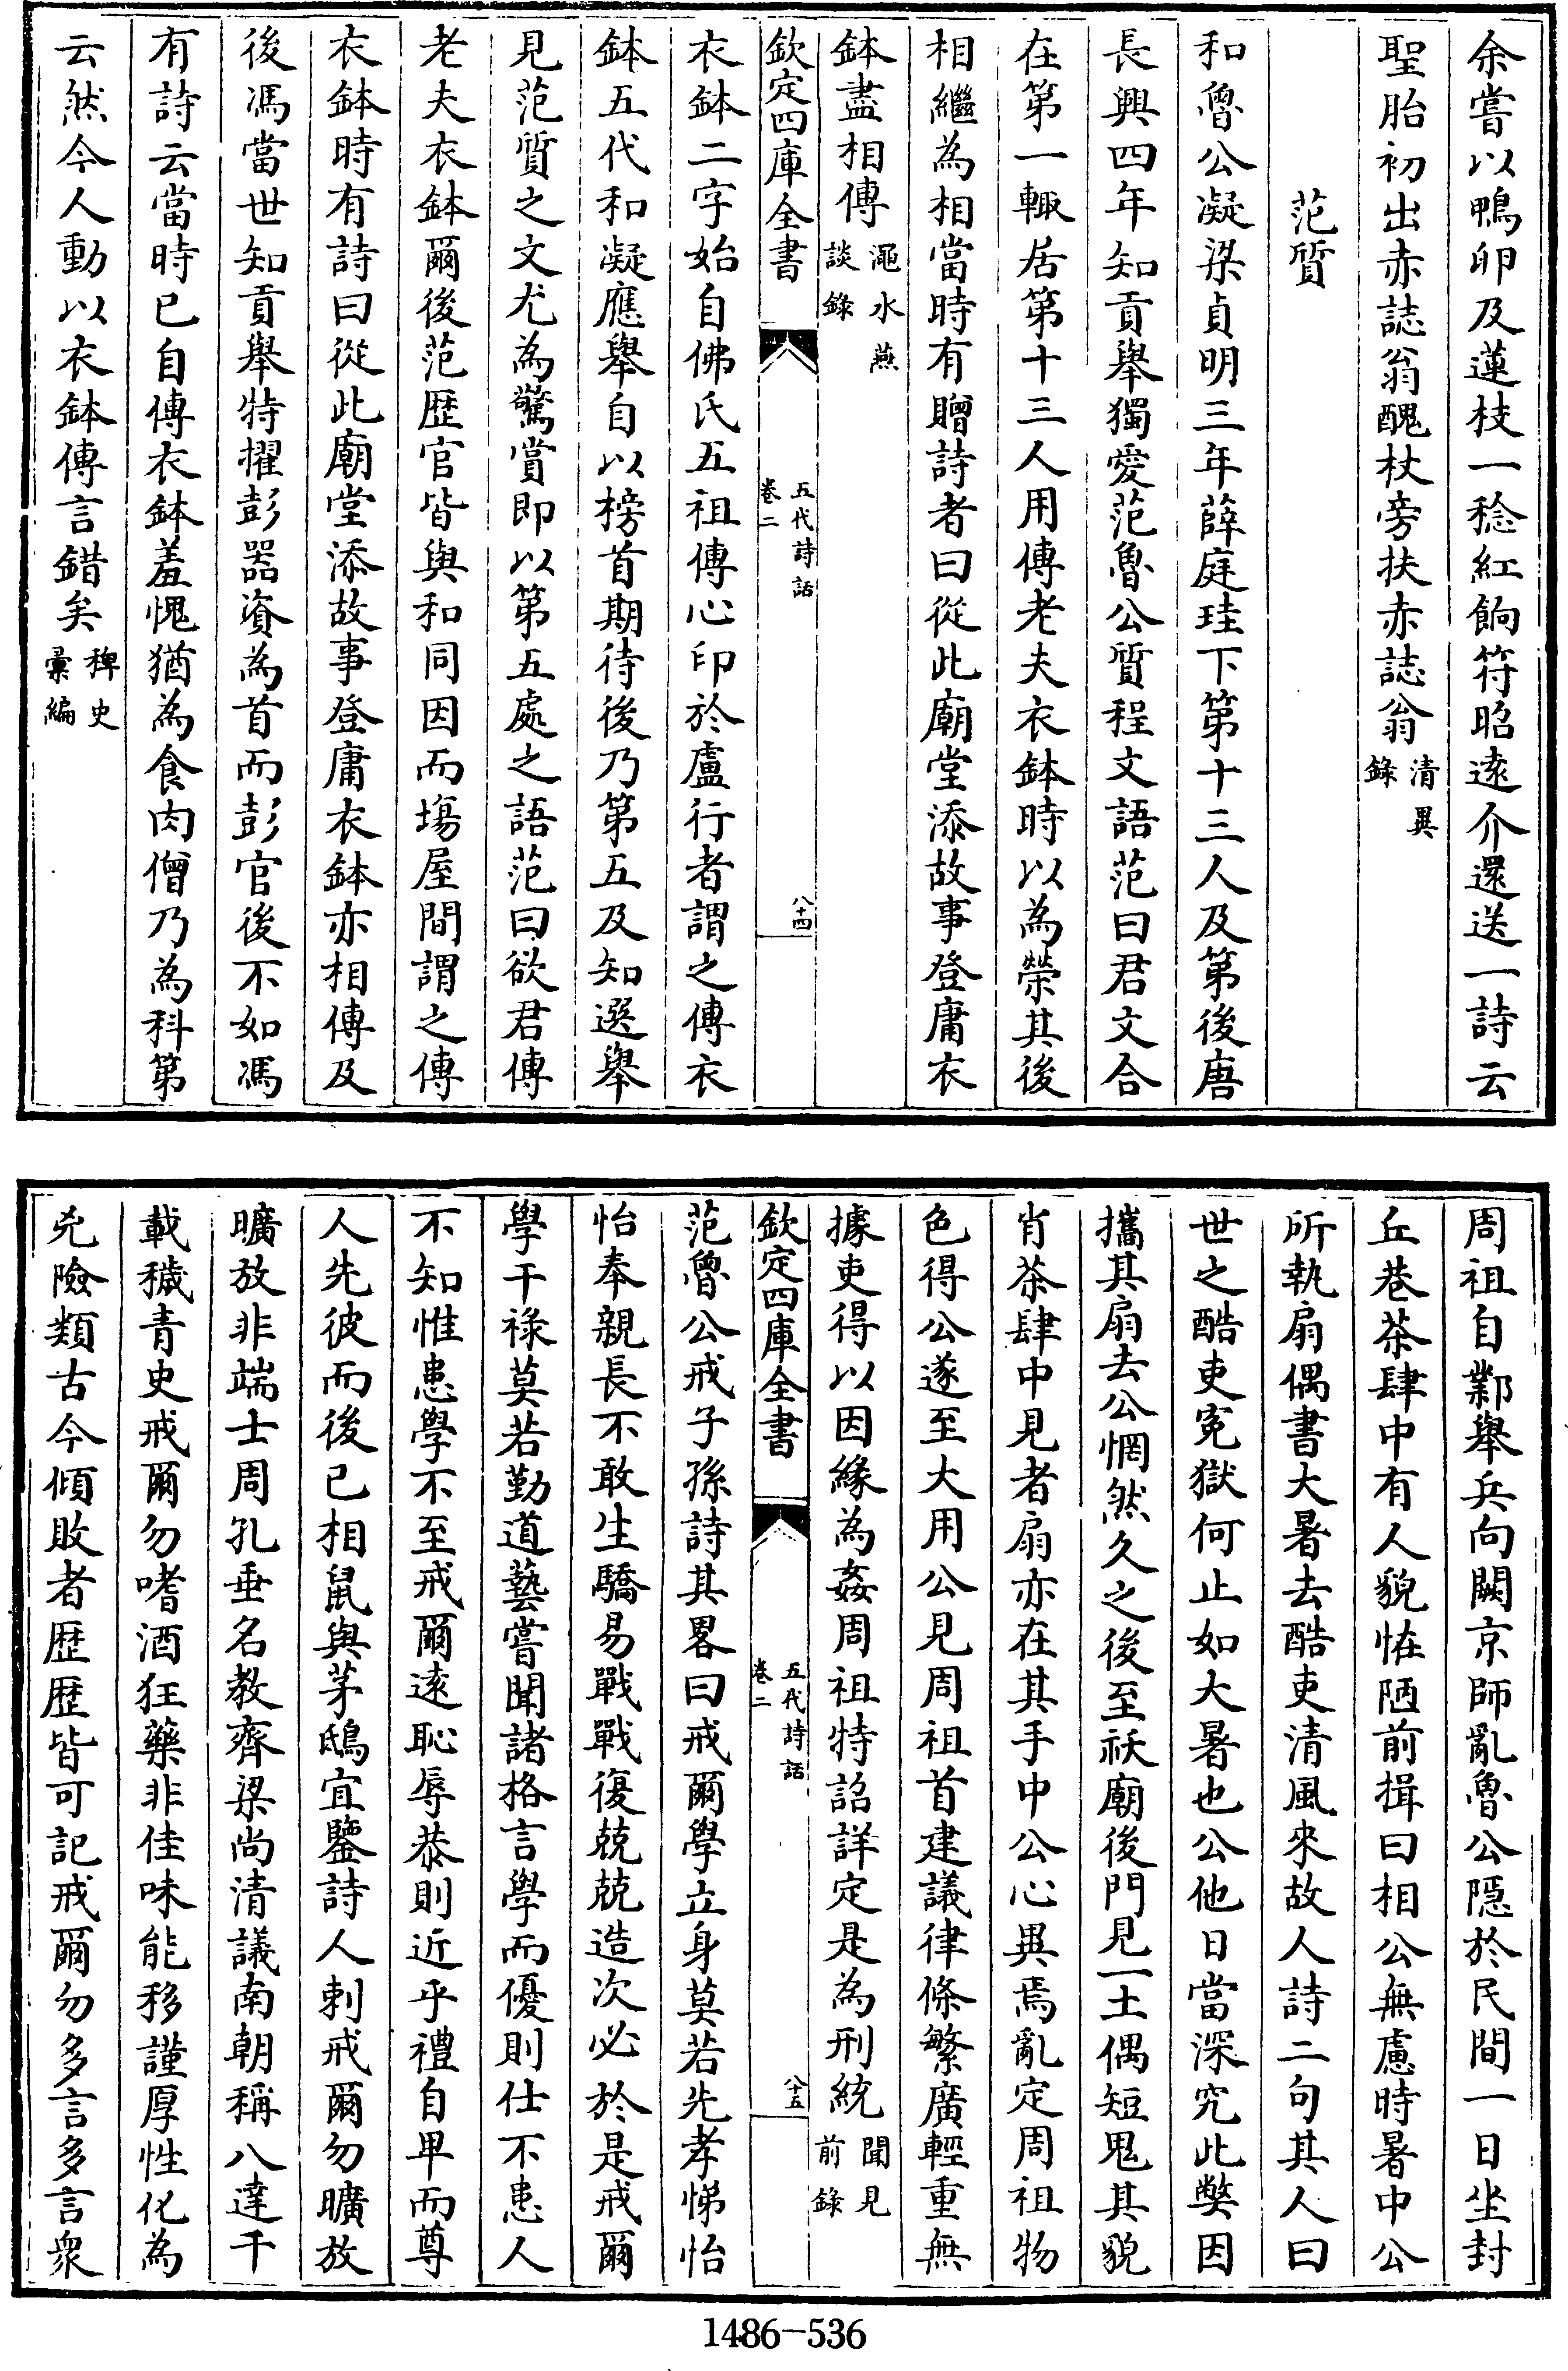 余嘗以鴨卵及蓮枝一稔紅餉符昭逺介還送一詩云
聖胎初出赤誌翁醜杖旁扶赤誌翁清異
錄
范質
和魯公凝梁貞明三年薛庭珪下第十三人及第後唐
長興四年知貢舉獨愛范魯公質程文語范曰君文合
在第一輙居第十三人用傳老夫衣鉢時以為榮其後
相繼為相當時有贈詩者曰從此廟堂添故事登庸衣
鉢盡相傳澠水燕
談錄
欽定四庫全書
五代詩話
卷二
八十四
衣鉢二字始自佛氏五祖傳心印於盧行者謂之傳衣
鉢五代和凝應舉自以榜首期待後乃第五及知選舉
見范質之文尤為驚賞即以第五處之語范曰欲君傳
老夫衣鉢爾後范歴官皆與和同因而塲屋間謂之傳
衣鉢時有詩曰從此廟堂添故事登庸衣鉢亦相傳及
後馮當世知貢舉特擢彭器資為首而彭官後不如馮
有詩云當時已自傳衣鉢羞愧猶為食肉僧乃為科第
云然今人動以衣鉢傳言錯矣稗史
彙編
周祖自鄴舉兵向闕京師亂魯公隠於民間一日坐封
丘巷茶肆中有人貌恠陋前揖曰相公無慮時暑中公
所執扇偶書大暑去酷吏清風來故人詩二句其人曰
世之酷吏寃獄何止如大暑也公他日當深究此獘因
攜其扇去公惘然久之後至祅廟後門見一土偶短鬼其貌
肖茶肆中見者扇亦在其手中公心異焉亂定周祖物
色得公遂至大用公見周祖首建議律條繁廣輕重無
據吏得以因緣為姦周祖特詔詳定是為刑統聞見
前錄
欽定四庫全書
五代詩話
卷二
八十五
范魯公戒子孫詩其畧曰戒爾學立身莫若先孝悌怡
怡奉親長不敢生驕易戰戰復兢兢造次必於是戒爾
學干祿莫若勤道藝嘗聞諸格言學而優則仕不患人
不知惟患學不至戒爾逺恥辱恭則近乎禮自卑而尊
人先彼而後已相鼠與茅鴟宜鑒詩人刺戒爾勿曠放
曠放非端士周孔垂名教齊梁尚清議南朝稱八達千
載穢青史戒爾勿嗜酒狂藥非佳味能移謹厚性化為
兇險類古今傾敗者歴歴皆可記戒爾勿多言多言衆
1486-536